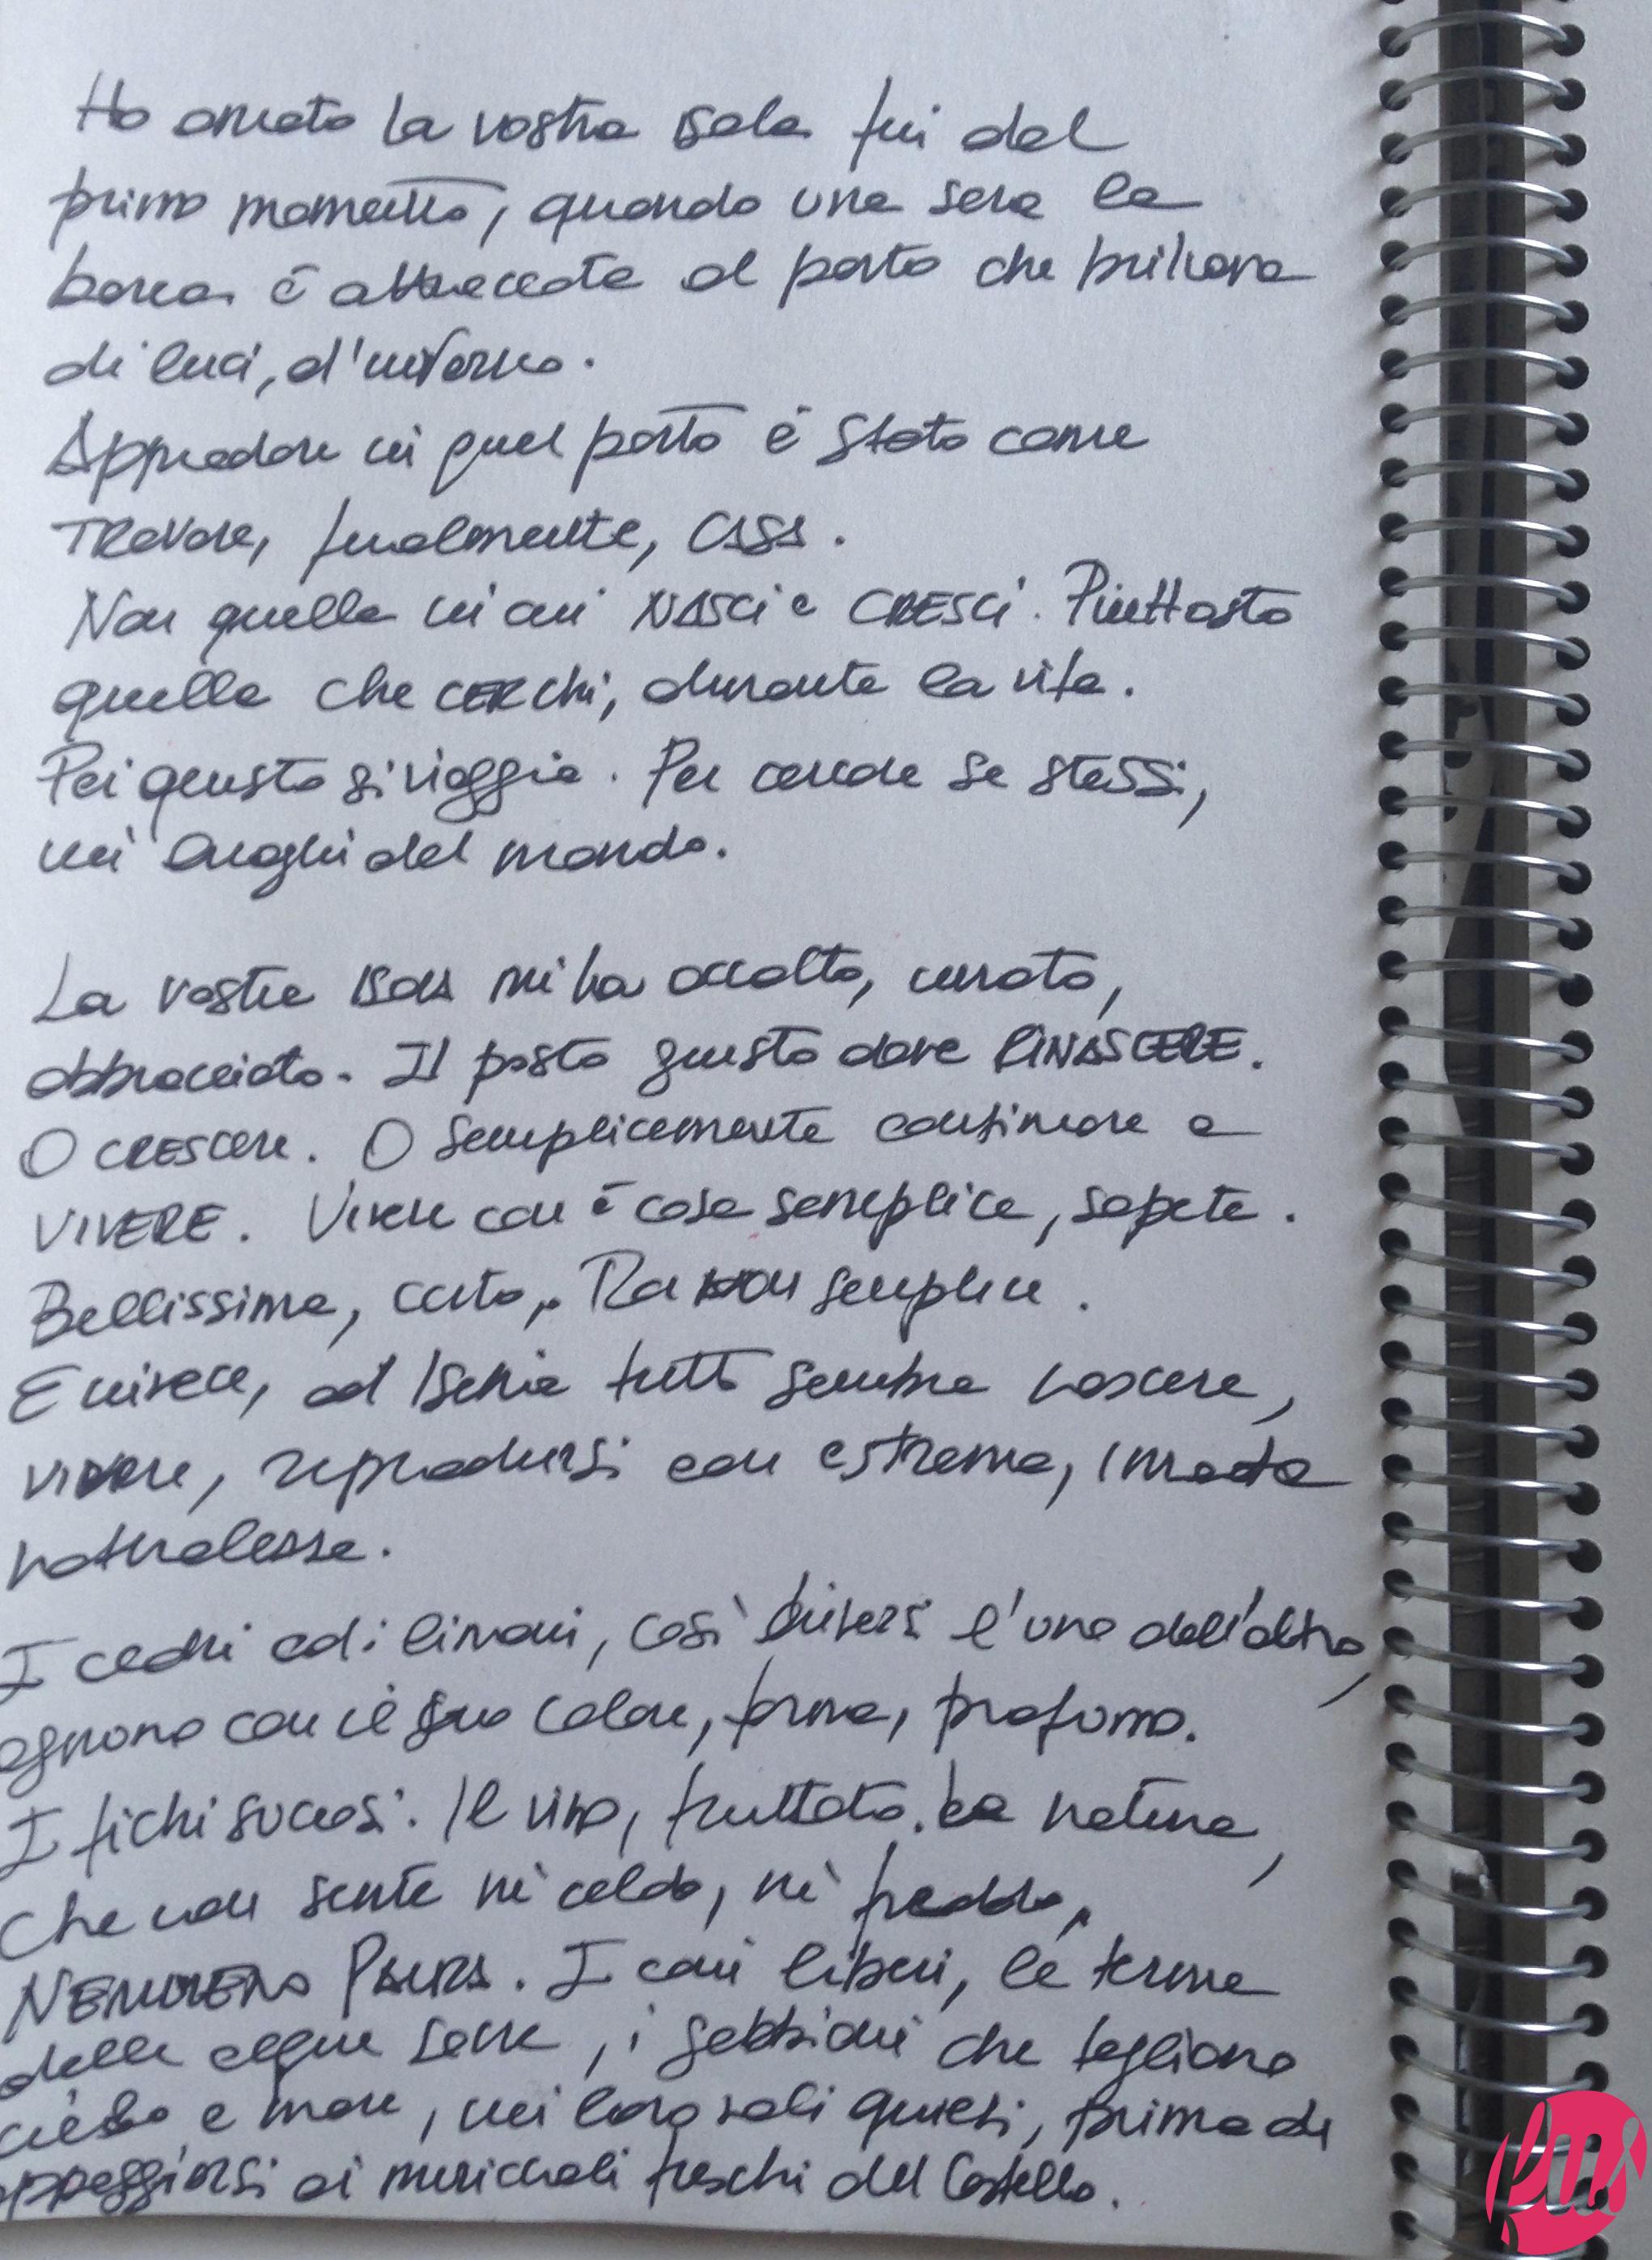 Ho amato la vostra isola fin dal
primo momento, quando una sera la
barca è attraccata al porto che brillava
di luci, d'inverno.
Approdare in quel porto è stato come
TROVARE, finalmente, CASA.
Non quella in cui NASCi e CRESCi. Piuttosto
quella che CERchi, durante la vita.
Per questo si viaggia. Per cercare se stessi,
nei luoghi del mondo.
La vostra ISOLA mi ha accolto, curato,
abbracciato. Il posto giusto dove RINASCERE.
O CRESCERE. O semplicemente continuare a
VIVERE. Vivere non è cosa semplice, sapete.
Bellissima, certo, Ma non semplice.
E invece, ad Ischia tutto sembra nascere,
vivere, riprodursi con estrema, innata
naturalezza.
I cedri ed i limoni, così diversi l'uno dall'altro,
ognuno con il suo colore, forma, profumo.
I fichi succosi. Il vino, fruttato. La natura,
che non sente nè caldo, nè freddo,
NEMMENO PAURA. I cani liberi, le terme
delle acque sacre, i gabbiani che tagliano
cielo e mare, nei loro voli quieti, prima di
appoggiarsi ai muriccioli freschi del Castello.